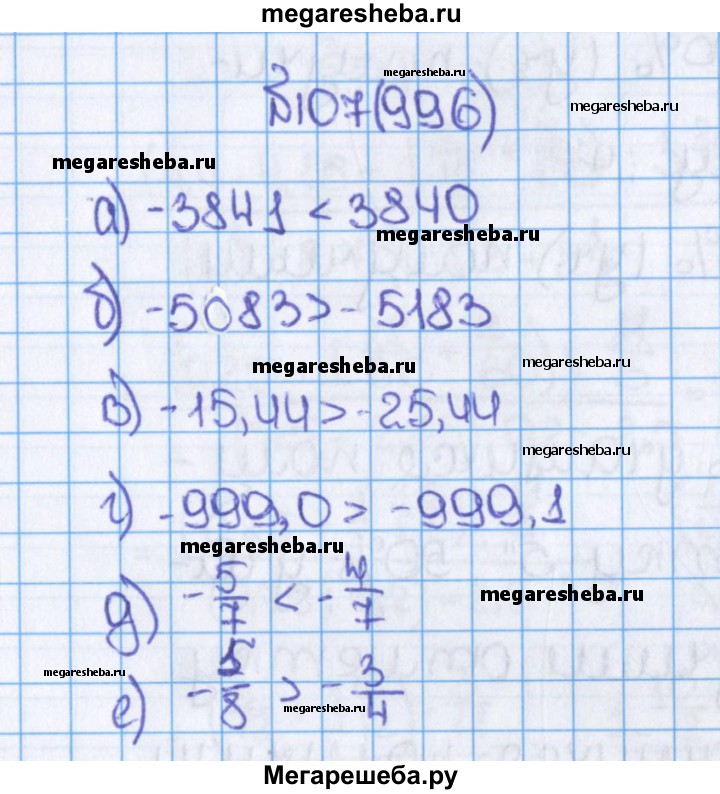 megaresheba.ru
megaresheba.ru
№107(996)
megaresheba.ru
megaresheba.ru
а) -3841 < 3840
megaresheba.ru
б) -5083 > -5183
megaresheba.ru
megaresheba.ru
в) -15,44 > -25,44
megaresheba.ru
г) -999,0 > -999,1
megaresheba.ru
д) -5/7 < -4/7
megaresheba.ru
megaresheba.ru
е) -5/8 > -3/4
megaresheba.ru
Мегарешеба.ру